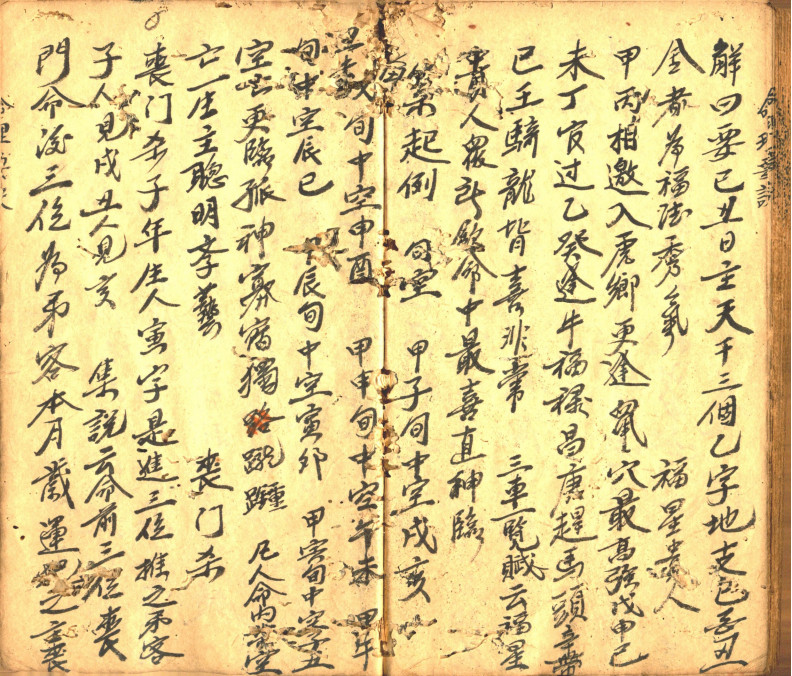 解曰要己丑日主天干三個乙字地支已亥丑
全者為福德秀氣　福星貴人
甲丙相邀入虎鄉更逢鼠穴最高強戊申己
未丁宜过乙癸逢牛福祿昌庚趕馬頭辛帶
巳壬騎龍背喜非常　三車一覽賦云福星
貴人最喜直神臨
起倒　旬空　甲子旬中空戌亥
旬中空申酉　甲申旬中空午未　甲午
旬中空辰巳　辰旬中空寅卯　甲寅旬中空子丑
空亡更臨孤神寡宿獨　凡人命内
亡一生主聰明李藝　丧门杀
丧门杀子年生人寅字是進三位推之吊客
子人見戌丑人見亥　集説云命前三位丧
門命後三位為吊客本月歲運之主丧